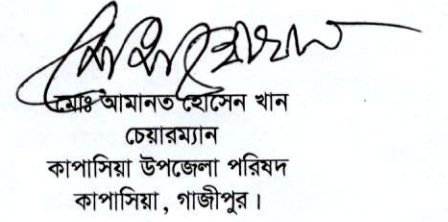 মোঃ আমানত হোসেন খান
চেয়ারম্যান
কাপাসিয়া উপজেলা পরিষদ
কাপাসিয়া, গাজীপুর।